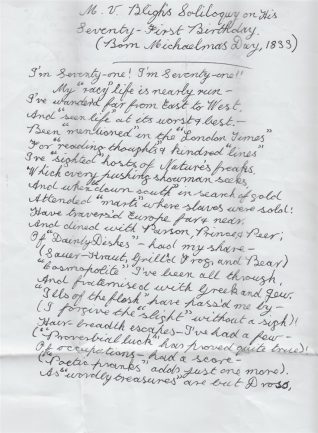 M. V. Bligh's Soliloquy on His
Seventy-First Birthday.
(Born Michaelmas Day, 1833)
I'm Seventy-one! I'm Seventy-one!!
My "racy" life is nearly run -
I've wander'd far from East to West,
And "seen life" at its worst & best. -
Been "mentioned" in the "London Times"
For "reading thoughts" & kindred "lines"
I've "sighted" hosts of Nature's freaks,
Which every pushing showman seeks,
And when "down south" in search of gold
Attended "marts" where slaves were sold:
Have travers'd Europe far & near,
And dined with Parson, Prince, & Peer;
Of "Dainty Dishes" - had my share -
(Sauer-Kraut, Grill'd Frog, and Bear)
"Cosmopolite" I've been all through,
And fraternised with Greek and Jew.
"Ills of the flesh" have pass'd me by -
(I forgive the "slight" without a sigh)!
Hair-breadth escapes - I've had a few -
("Proverbial luck" has proved quite true)!
Of occupations - had a score -
("Poetic pranks" adds just one more).
As "wordly treasures" are but Dross,